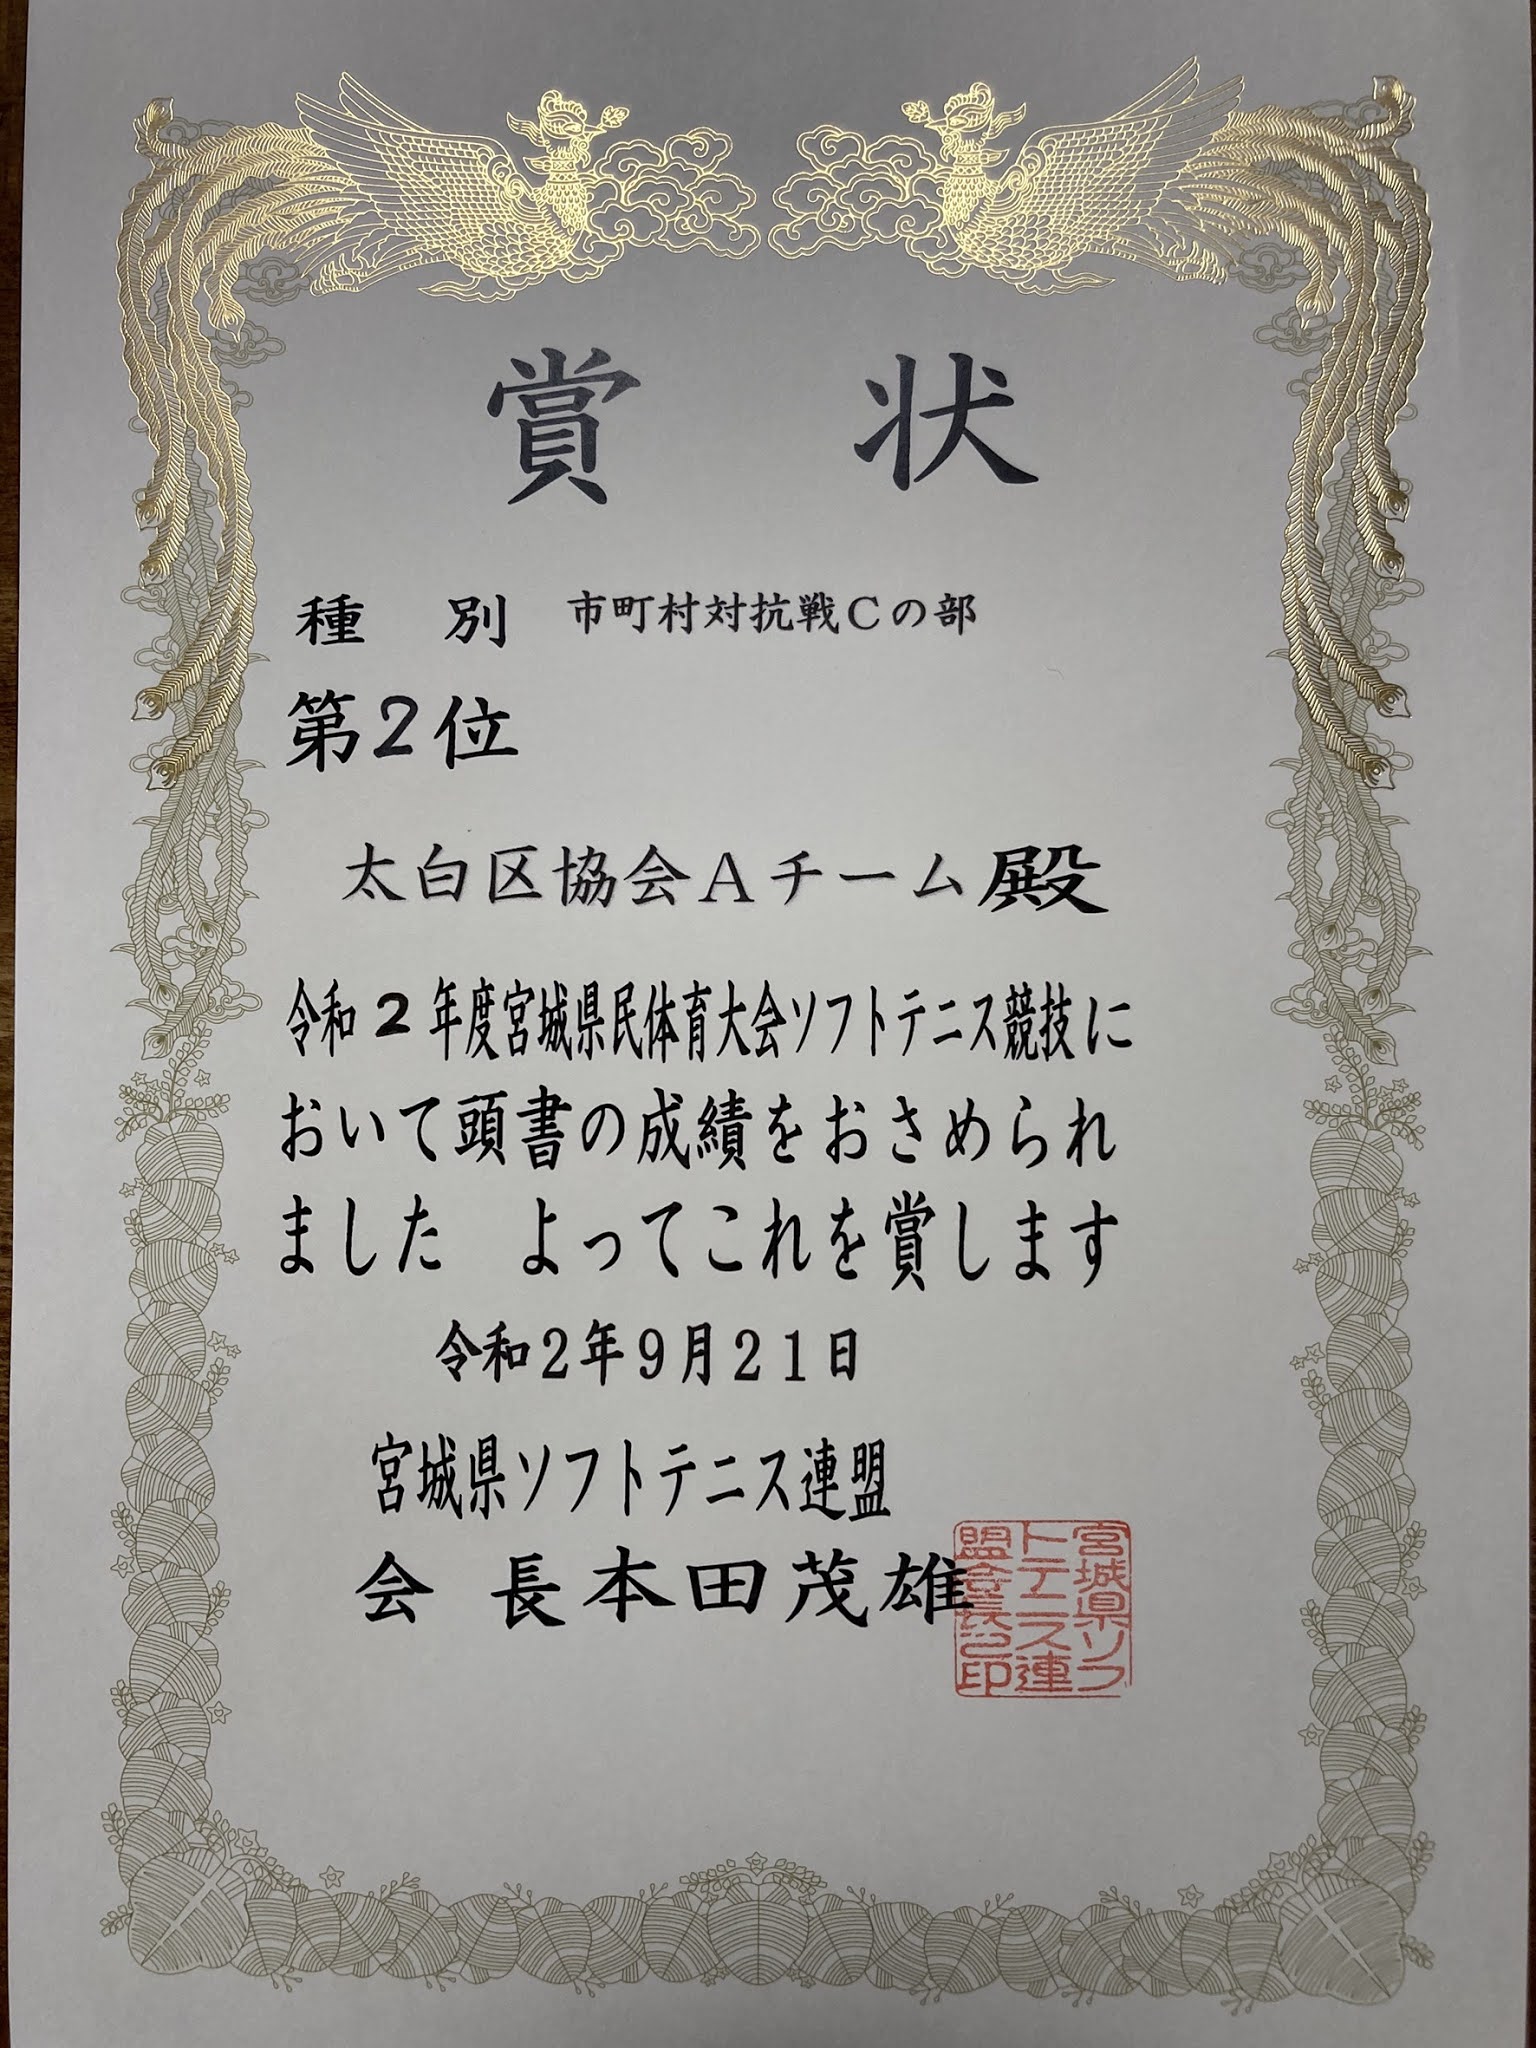 賞　状
種　別　市町村対抗戦Ｃの部
第２位
太白区協会Ａチーム殿
令和２年度宮城県民体育大会ソフトテニス競技に
おいて頭書の成績をおさめられ
ました　よってこれを賞します
令和２年９月２１日
宮城県ソフトテニス連盟
会　長本田茂雄
宮城県ソフ
トテニス連
盟会長之印